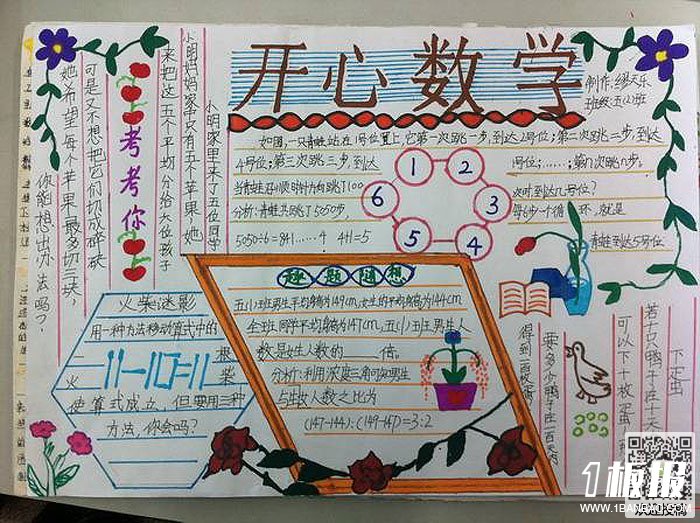 开心数学
制作:缪天乐
班级:五(1)班
如图,一只青蛙站在1号位置上,它第一次跳一步,到达2号位;第二次跳二步,到达
4号位;第三次跳三步,到达
1号位;……;第n次跳n步,
当青蛙沿顺时针方向跳了100
次时到达几号位?
分析:青蛙共跳了5050步,
每6步一个循环,就是
5050÷6=841……4
4+1=5
青蛙到达5号位
1
2
3
4
5
6
考考你
小明家里来了五位同学
小明妈妈家中只有五个苹果,她
来把这五个平均分给六位孩子
可是又不想把它们切成碎块
她希望每个苹果最多切三块,
你能想出办法吗?
火柴迷影
用一种方法移动算式中的
一根火柴
11-110=11
使算式成立,但要用三种
方法,你会吗?
趣题随想
五(1)班男生平均身高为149cm,女生的平均身高为144cm
全班同学平均身高为147cm,五(1)班男生人
数是女生人数的____倍。
分析:利用浓度三角可知男生
与女生人数之比为
(147-144):(149-147)=3:2
下蛋
若十只鸭子在十天
可以下十枚蛋
要多少鸭子在一百天内
得到一百枚蛋
1板报
WWW.1BANBAO.COM
欢迎投稿